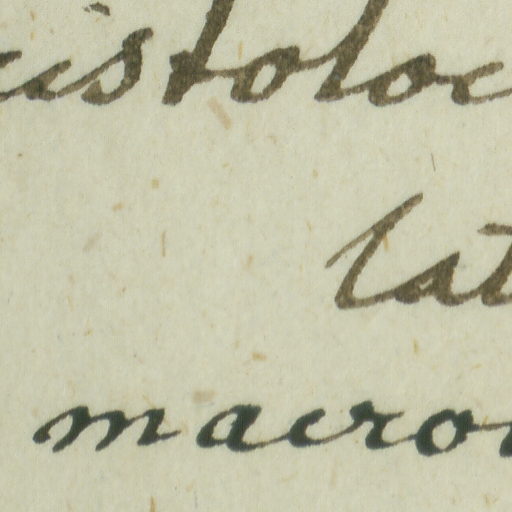 istoloc
lat
macro